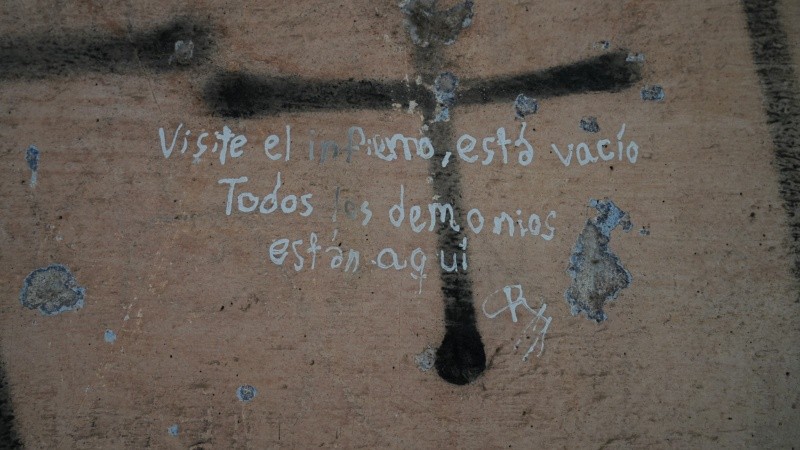 Visite el infierno, está vacío
Todos los demonios
están aquí